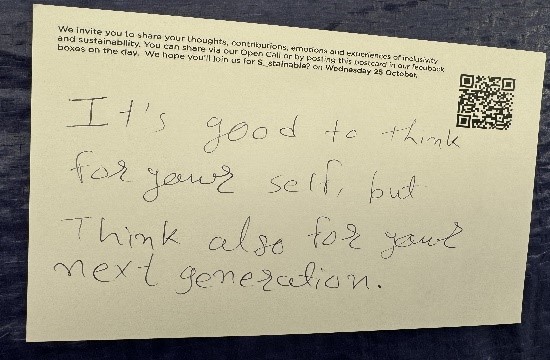 We invite you to share your thoughts, contributions, emotions and experiences of inclusivity
and sustainability. You can share via our Open Call or by posting this postcard in our feedback
boxes on the day. We hope you'll join us for S_stainable? on Wednesday 25 October.
It's good to think
for your self, but
Think also for your
next generation.